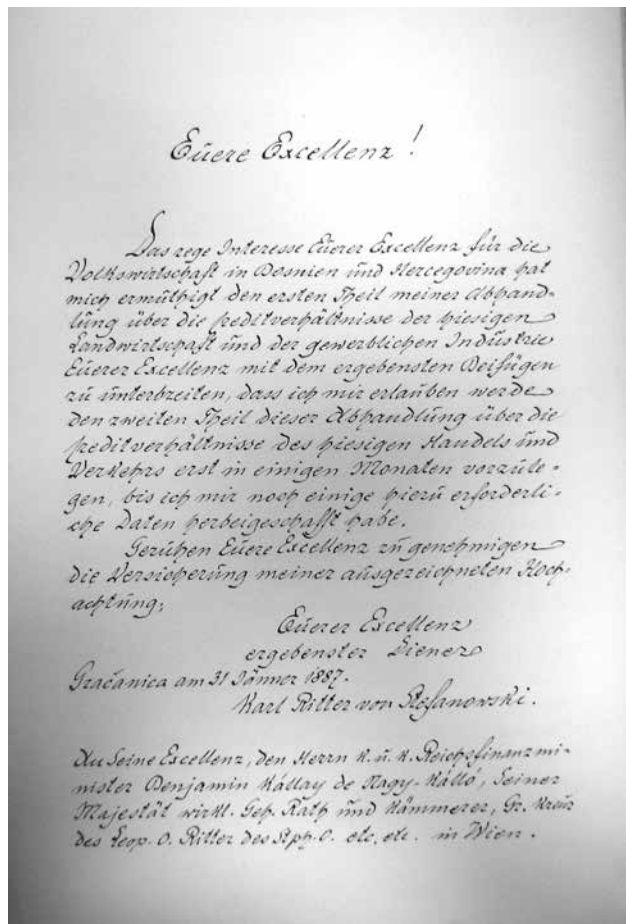 Euere Excellenz!
Das rege Interesse Euerer Excellenz für die
Volkswirtschaft in Bosnien und Hercegovina hat
mich ermüthigt den ersten Theil meiner Abhand-
lung über die Creditverhältnisse der hiesigen
Landwirtschaft und der gewerblichen Industrie
Euerer Excellenz mit dem ergebensten Beifügen
zu unterbreiten, dass ich mir erlauben werde
den zweiten Theil dieser Abhandlung über die
Creditverhältnisse des hiesigen Handels und
Verkehrs erst in einigen Monaten vorzule-
gen, bis ich mir noch einige hiezu erforderli-
che Daten herbeigeschafft habe.
Geruhen Euere Excellenz zu genehmigen
die Versicherung meiner ausgezeichneten Hoch-
achtung;
Euerer Excellenz
ergebenster Diener
Gračanica am 31 Jänner 1887.
Karl Ritter von Stefanowski.
An Seine Excellenz, den Herrn k. u. k. Reichsfinanzmi-
nister Benjamin Kállay de Nagy-Kálló, Seiner
Majestät wirkl. Geh. Rath und Kämmerer, Gr. Kreuz
des Leop. O. Ritter des Stph. O. etc. etc. in Wien.